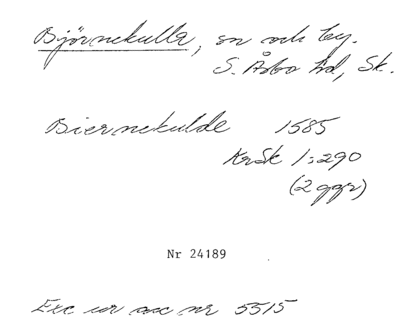 Björnekulla, sn och by.
S. Åsbo hd, Sk.
Biernekulde 1585
KrSk 1:290
(2 ggr)
Nr 24189
Exc ur acc nr 5515